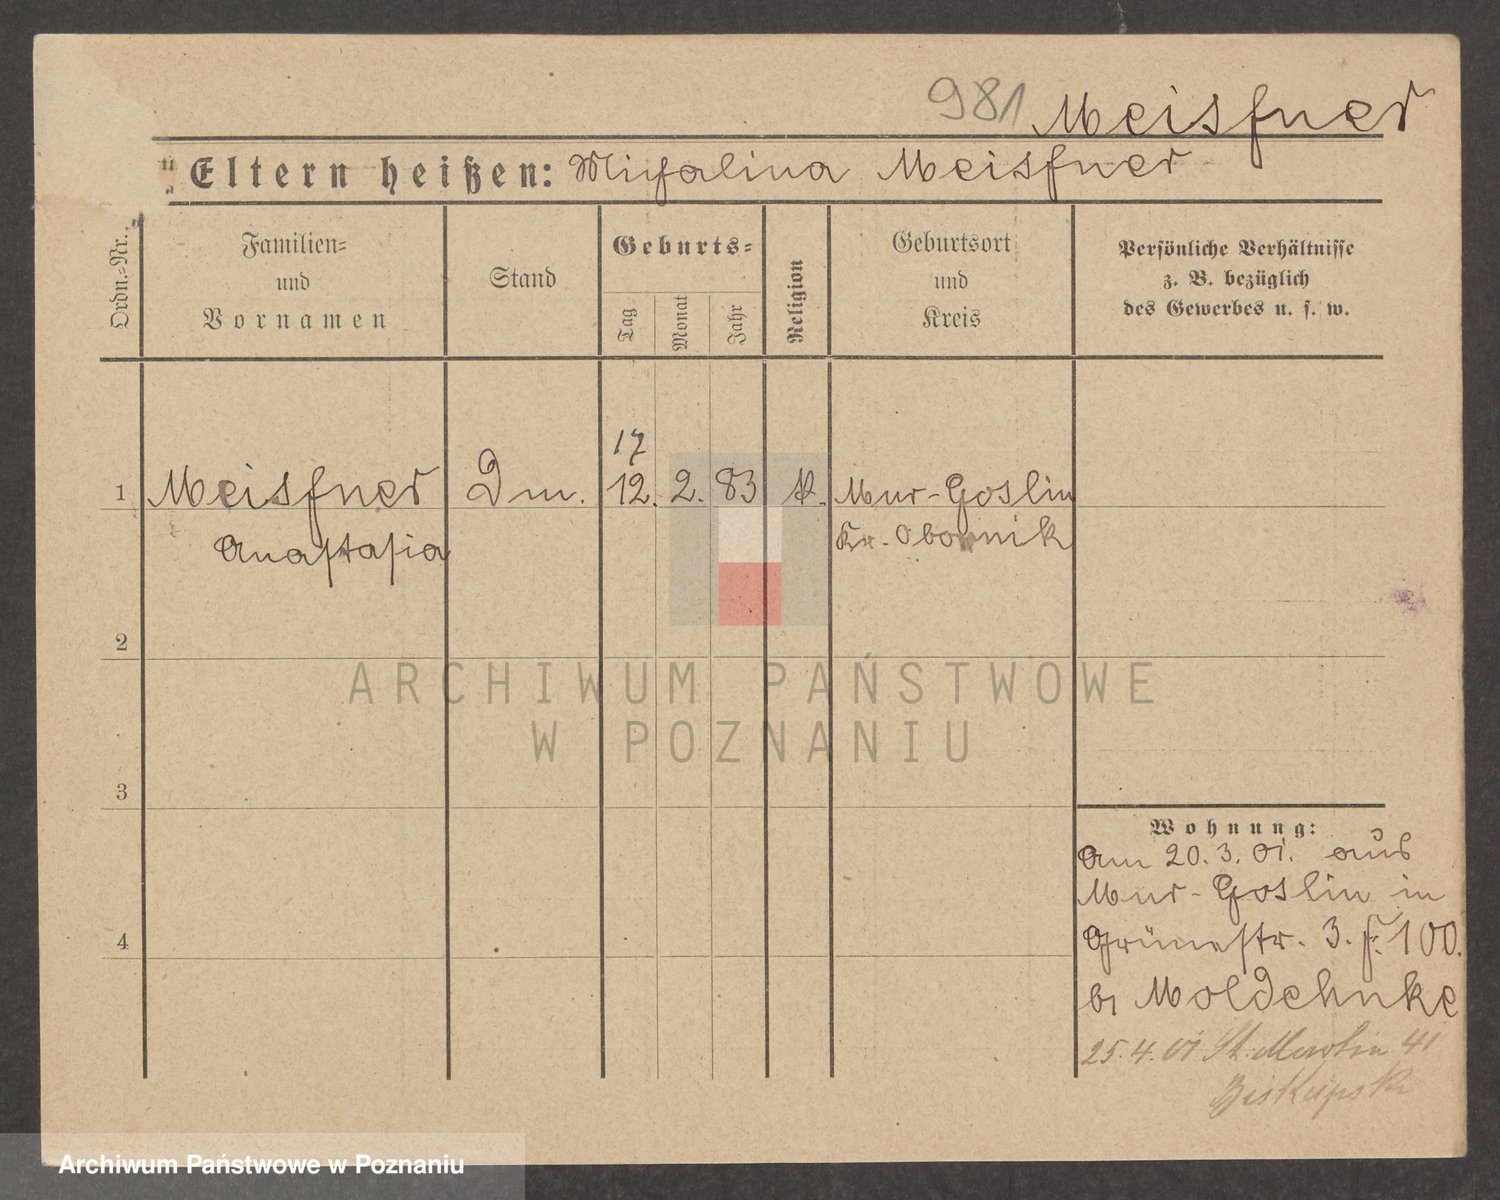 981 Meisfner
Eltern heißen: Michalina Meisfner
Ordn.=Nr.
Familien=
und
Vornamen
Stand
Geburts=
Tag
Monat
Jahr
Religion
Geburtsort
und
Kreis
Persönliche Verhältnisse
z. B. bezüglich
des Gewerbes u. s. w.
17
1 Meisfner Dm. 12. 2. 83 K. Mur-Goslin
Anastasia Kr. Obornik
2
3
4
Wohnung:
Am 20.3.01. aus
Mur-Goslin in
Grünestr. 3. F. 100.
bi Moldehnke
25.4.01 St. Martin 41
Biskupski
ARCHIWUM PAŃSTWOWE
W POZNANIU
Archiwum Państwowe w Poznaniu